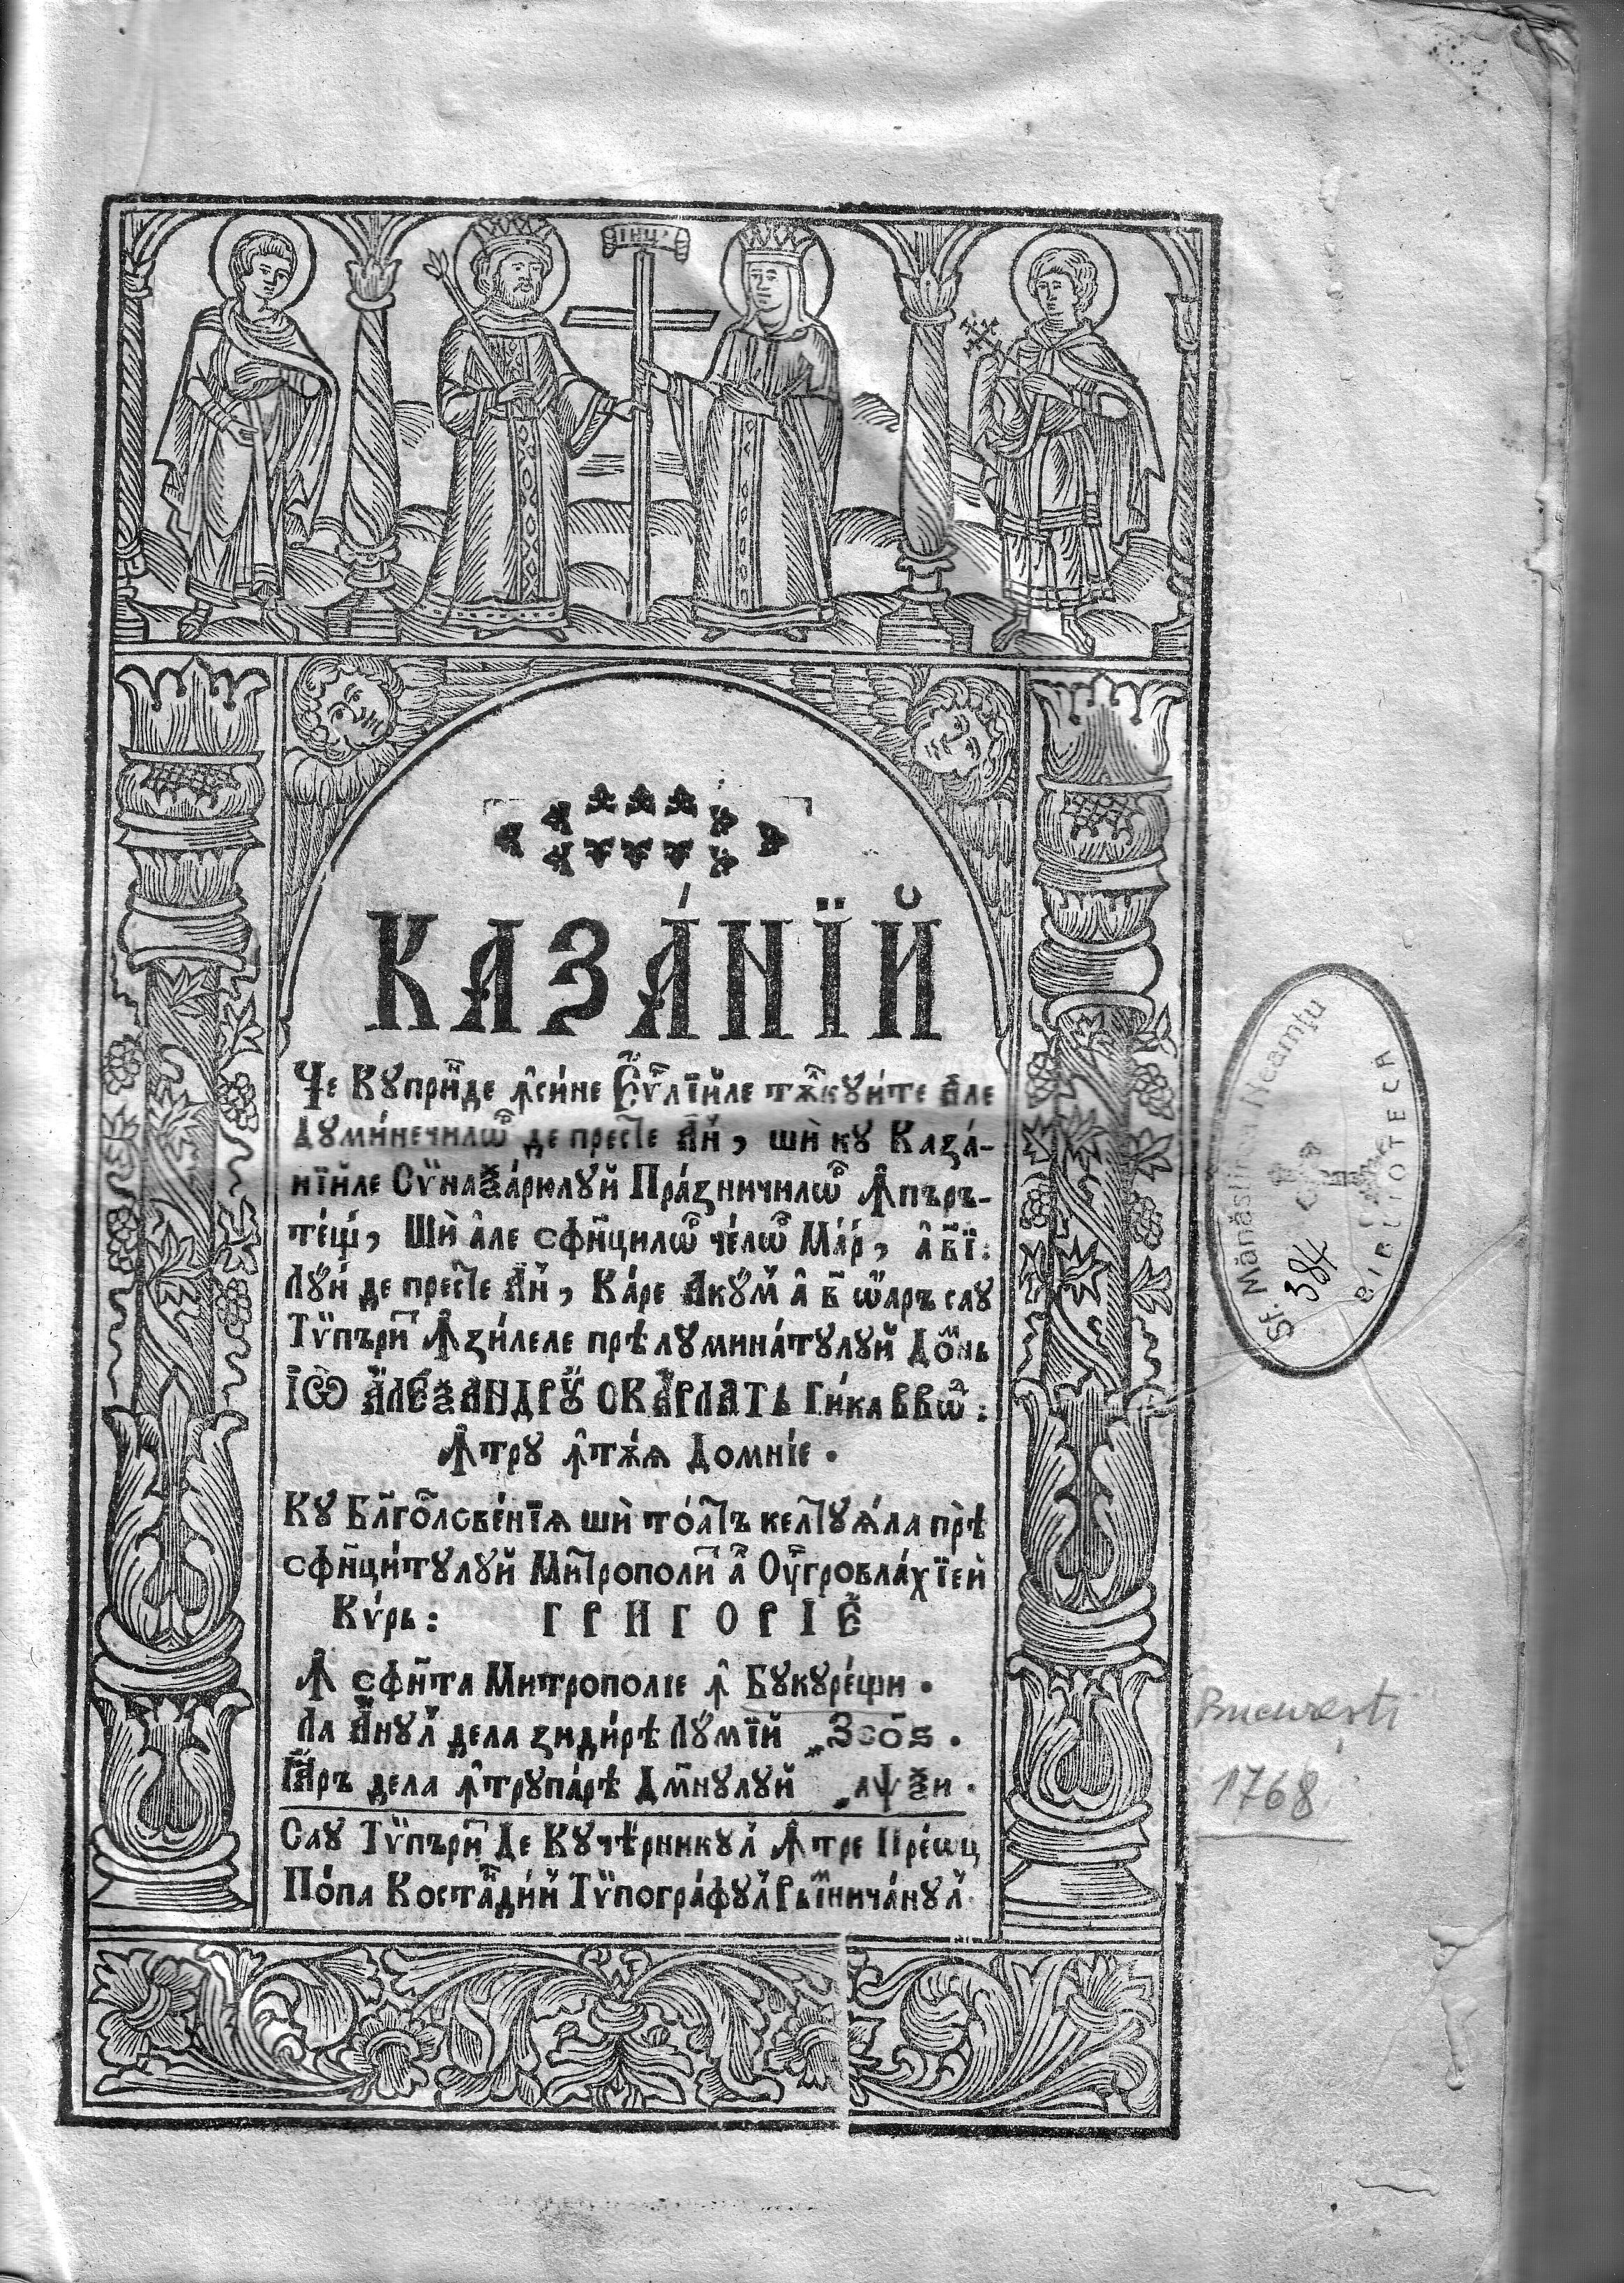 ІНЦІ
КАЗА́НЇЙ
Че Кꙋпри́нде ꙟ҆си́не Єѵⷢ҇лїйле тѫ̑лкꙋи́те а҆ле
Дꙋми́нечилѡⷬ҇ де песте А҆н, шѝ кꙋ Каза́-
нїйле Сѷнаѯа́рюлꙋй Пра́ꙁничилѡⷬ҇ ꙟ҆пъръ-
те́щй, Шѝ а҆ле сфи́нцилѡⷬ҇ че́лѡⷬ҇ Ма́рй, а҆ вї:
Лꙋ́нй де песте А҆н, Ка́ре Акꙋ́м а҆ в҃ ѡ҆аръ сау
Тѷпъри́т ꙟ҆ꙁи́леле прѣлꙋмина́тꙋлꙋй До́мнь
І҆Ѡ҆ А҆ЛЕѮАНДРꙊ СКАРЛАТЬ Ги́ка ВВѡⷣ:
ꙟ҆тру ꙟ҆тѫ́ѧ Домніе.
Кꙋ Бл҃гⷭ҇ове́нїѧ шѝ то́атъ келтꙋѧ́ла прѣ
сфи҃нци́тꙋлꙋй Митрополи́т а҆л Оу҆гровла́хїей
Кѵ́рь: ГРИГОРІЕ
ꙟ҆ Сфн҃та Митрополіе ꙟ҆ Бꙋкꙋре́щи.
Ла А҆нꙋл дела ꙁиди́рѣ Лꙋ́мїй ҂ЗСО҃Ѕ.
Ꙗ҆ръ дела ꙟ҆трꙋпа́рѣ Дм҃нꙋлꙋй ҂аѱѯи.
Сау Тѷпъри́т Де Кꙋче́рникꙋл ꙟ҆тре Пре́ѡ҆цй
По́па Костанди́н Тѷпогра́фꙋл Рьⷨничѧ́нꙋл
Sf. Mănăstirea Neamțu
384
BIBLIOTECA
București
1768